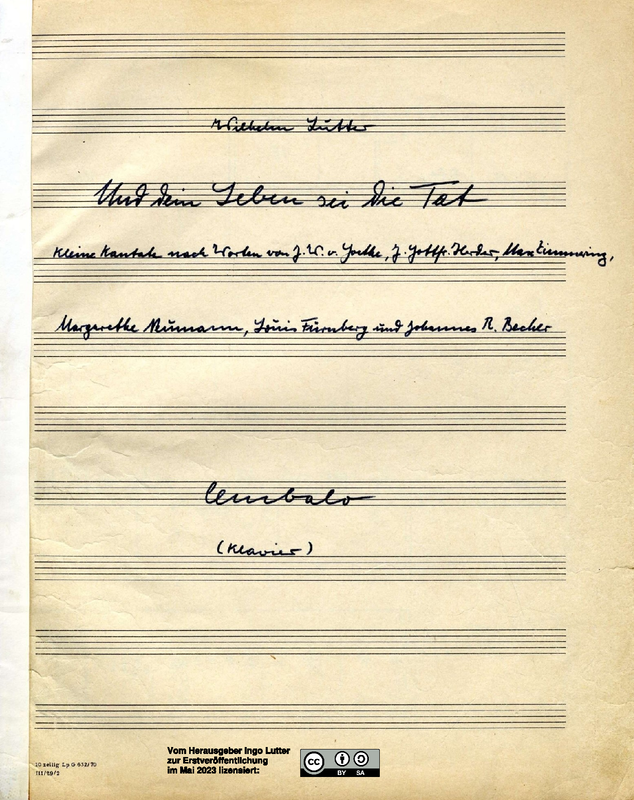 Wilhelm Lutter
Und dein Leben sei die Tat
Kleine Kantate nach Worten von J. W. v. Goethe, J. Gottfr. Herder, Max Zimmering,
Margarethe Neumann, Louis Fürnberg und Johannes R. Becher
Cembalo
(Klavier)
10 zeilig Lp G 632/70
III/29/2
Vom Herausgeber Ingo Lutter
zur Erstveröffentlichung
im Mai 2023 lizensiert:
cc BY SA